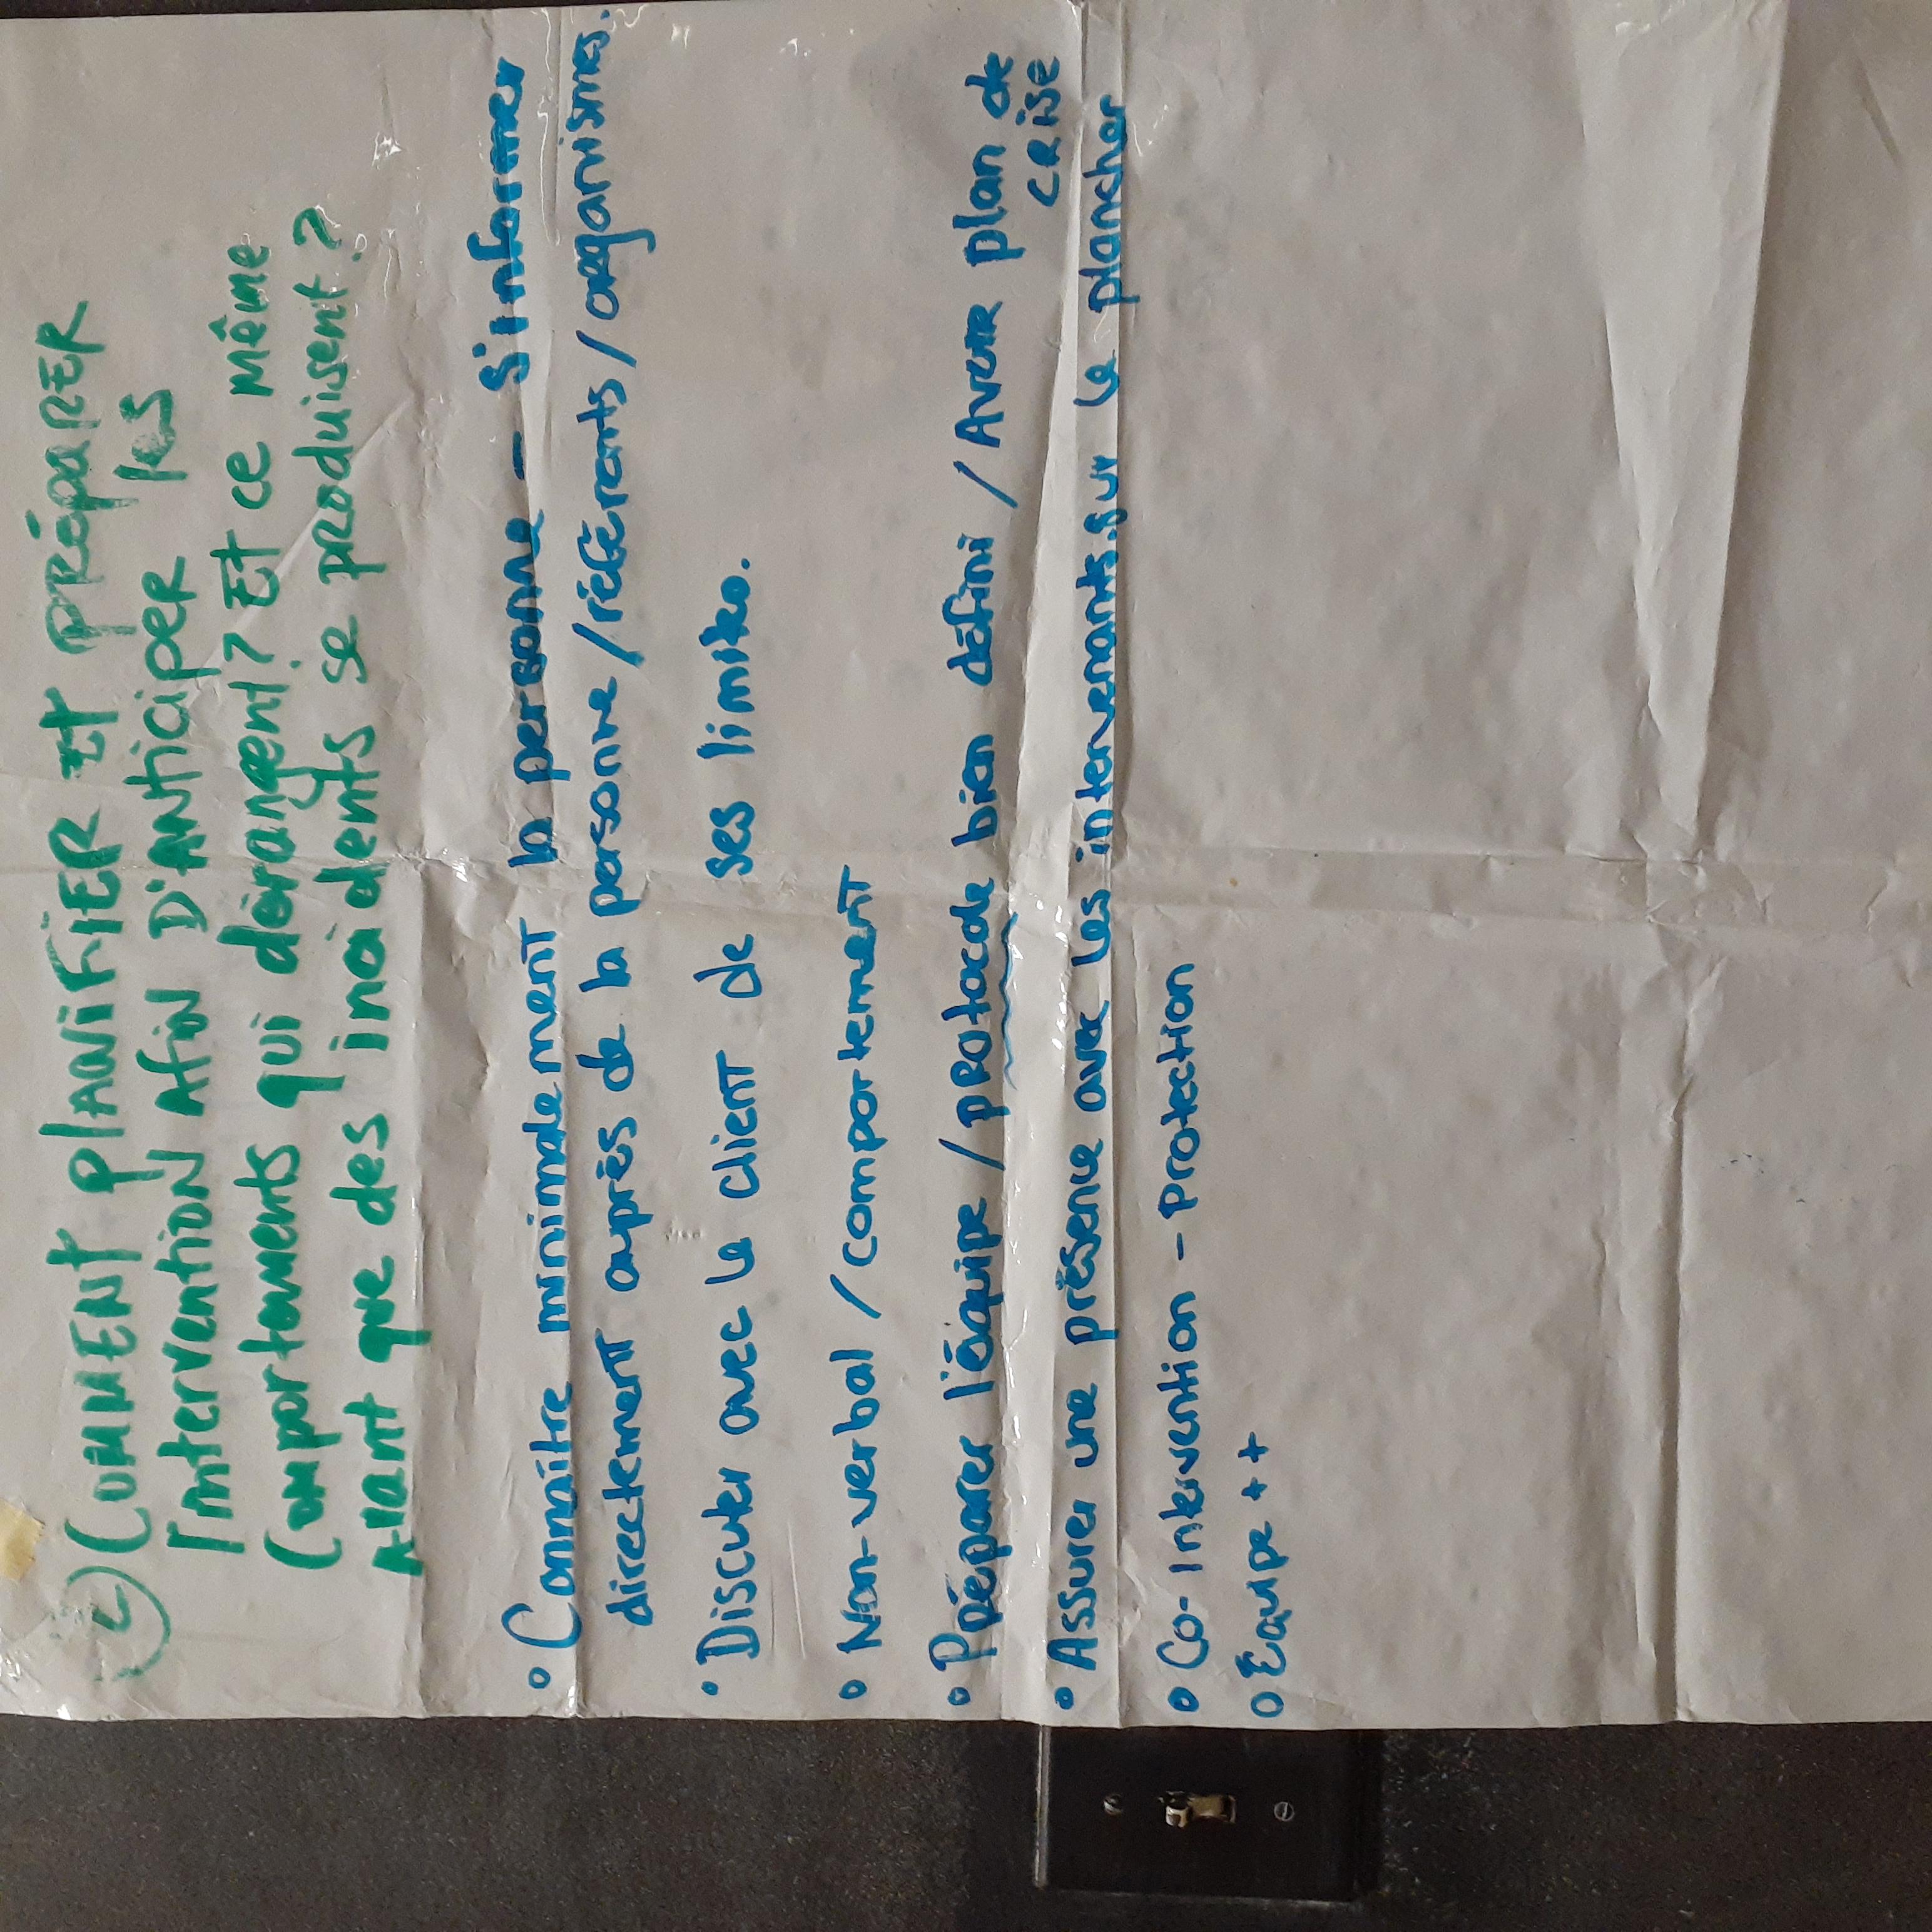 ② COMMENT PLANIFIER ET PRÉPARER
INTERVENTION AFIN D'ANTICIPER les
Comportements qui dérangent ? Et ce même
AVANT que des incidents se produisent ?
• Connaître minimalement la personne - S'informer
directement auprès de la personne / référents / organismes.
• Discuter avec le client de ses limites.
• Non-verbal / comportement
• Préparer l'équipe / protocole bien défini / Avoir plan de
crise
• Assurer une présence avec les intervenants sur le plancher
• Co-Intervention - Protection
• Equipe ++